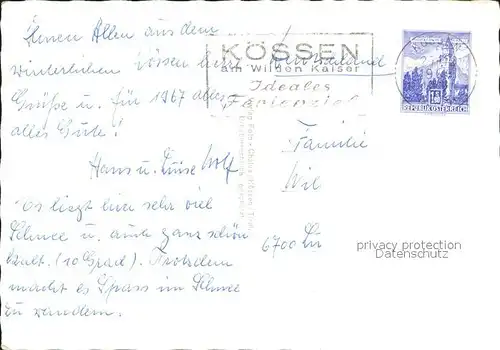 Ihnen Allen aus dem
winterlichen Kössen herzl.
Grüße u. für 1967 alles
alles Gute!
Hans u. Luise Wolf
Es liegt hier sehr viel
Schnee u. auch ganz schön
kalt. (10 Grad). Trotzdem
macht es Spass im Schnee
zu wandern.
KÖSSEN
am Wilden Kaiser
Ideales
Ferienziel
REPUBLIK ÖSTERREICH
Familie
6700 Lu
privacy protection
Datenschutz